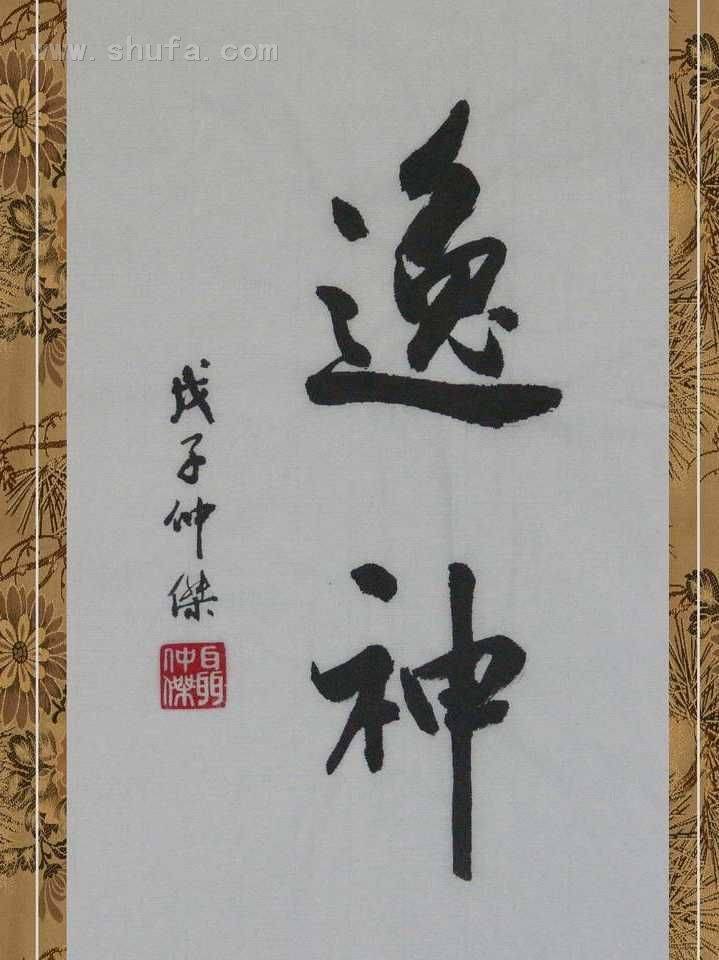 www.shufa.com
逸神
戊子仲傑
仲傑